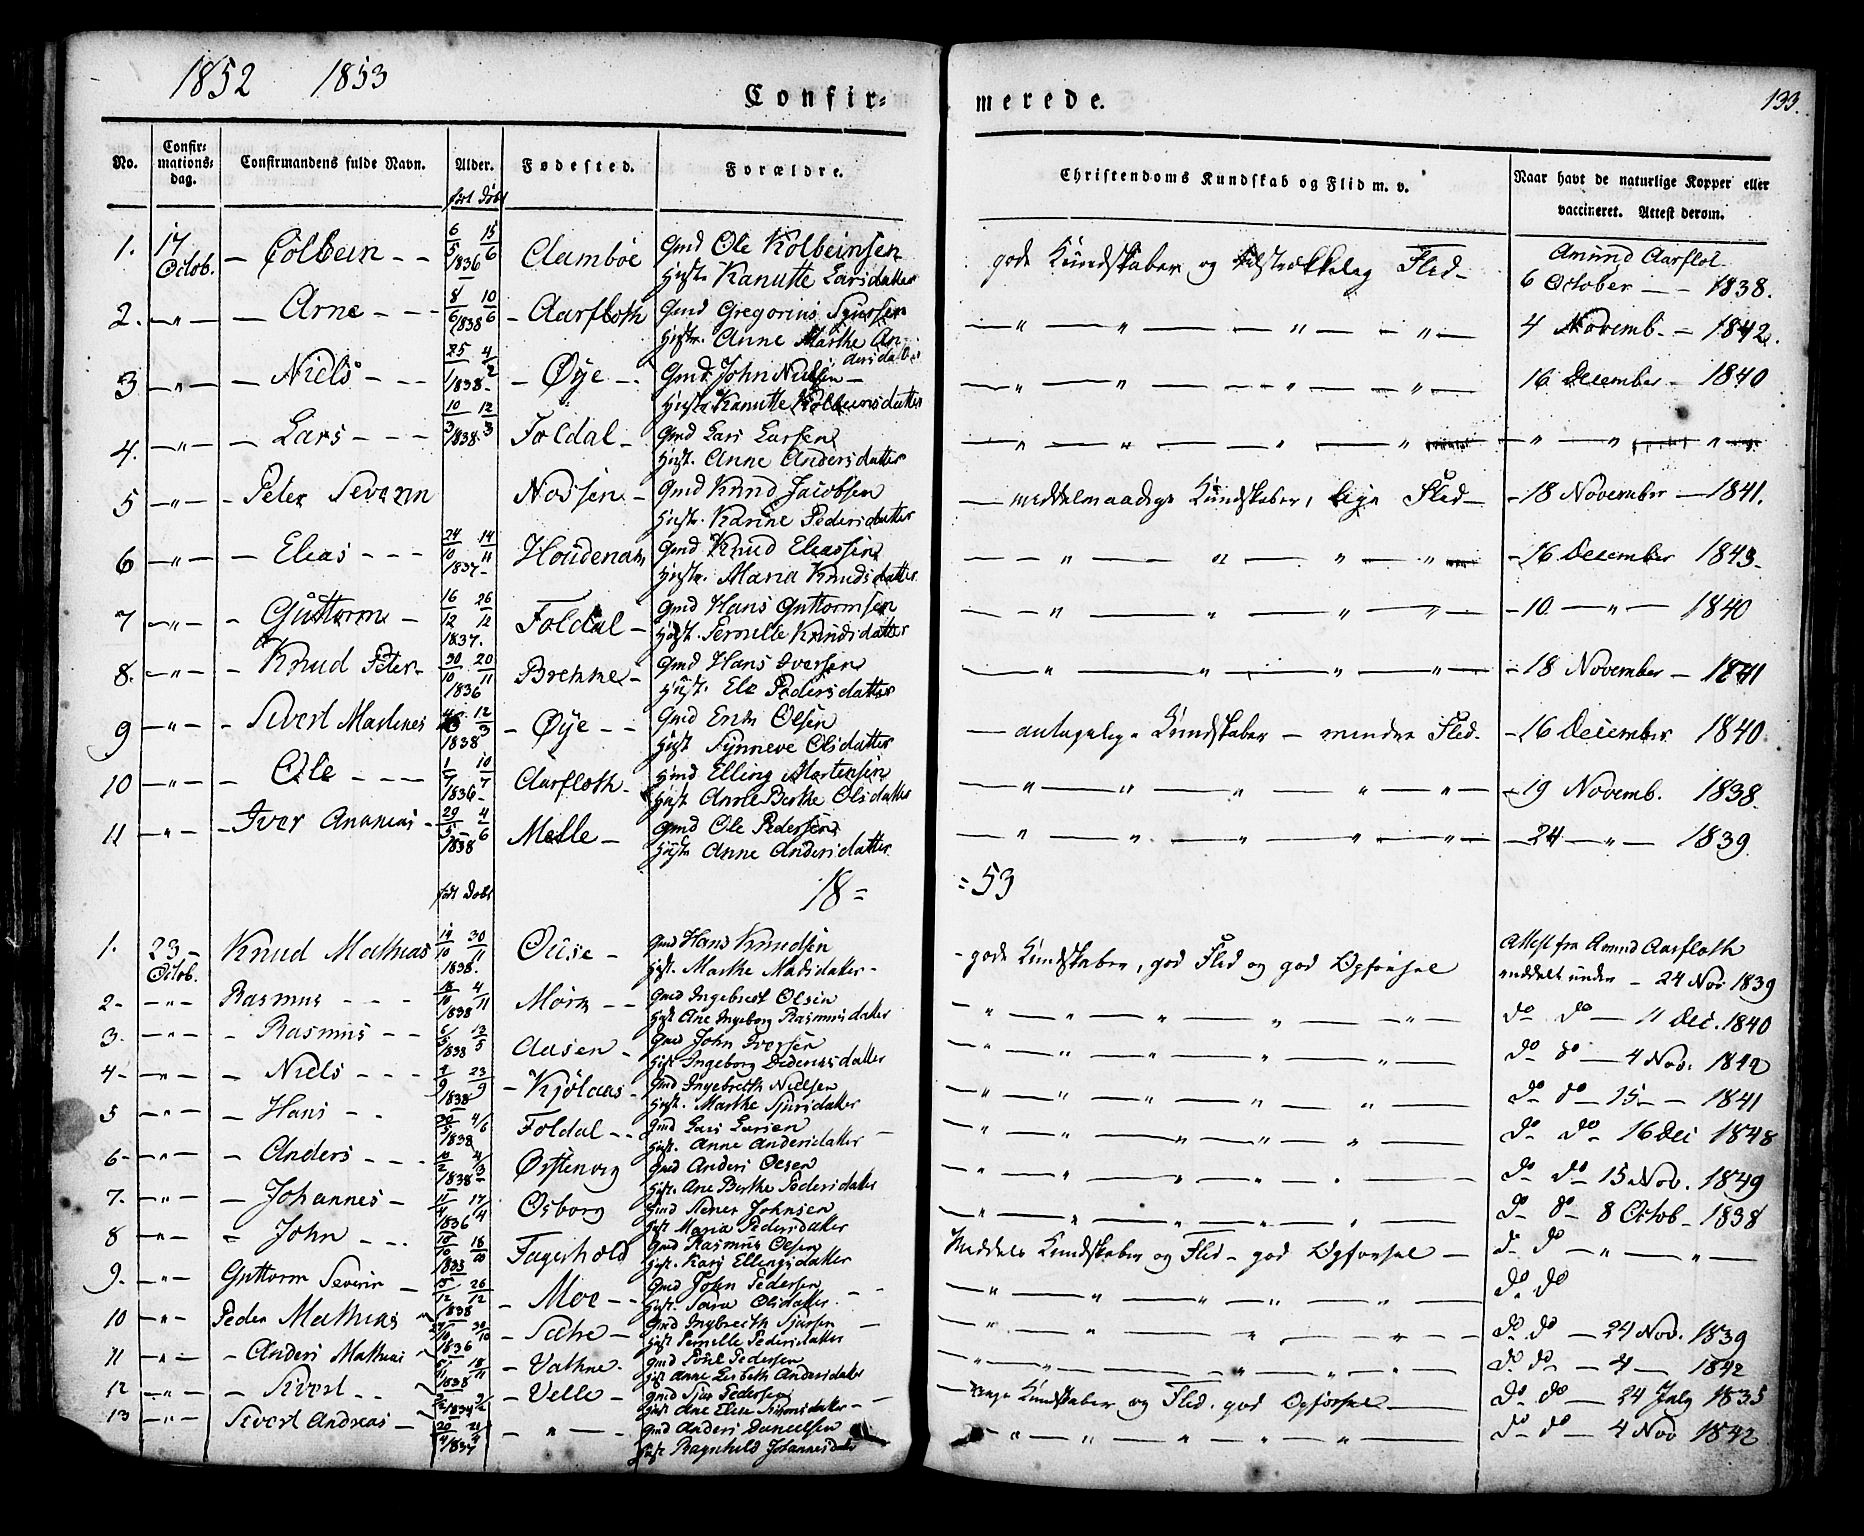 1852 1853
Confir= merede.
133.
No. Confir=mations=dag. Confirmandens fulde Navn. Alder. Fødested. Forældre. Christendoms Kundskab og Flid m. v. Naar havt de naturlige Kopper eller vaccineret. Attest derom.
født Döbt
1. 17 Octob. — Colbein - - 6/5 15/6 1836 Aambøe Gmd Ole Kolbeinsen
Hust. Kanutte Larsdatter gode Kundskaber og tilstrækkelig Flid - Amund Aarflot
6 October - - 1838.
2. - " - — Arne - - - 8/6 10/6 1838 - Aarfloth Gmd Gregorius Sjursen
Hustr. Anne Marthe Andersdatter — " — " — " — " — 4 Novemb. - 1842.
3 - " - — Niels - - - 25/1 4/2 1838 - Øye - Gmd. John Nielsen -
Hustr Kanutte Kolbeinsdatter — " — " — " — " — 16 December - 1840
4. - " - — Lars - - - 10/3 12/3 1838 Foldal - Gmd Lars Larsen
Hust. Anne Andersdatter — " — " — " — " — " — "
5 - " - - Peter Severin Nossen - Gmd Knud Jacobsen
Hustr. Karine Pedersdatter — middelmaadige Kundskaber, lige Flid - - 18 November - 1841.
6 - " - — Elias - - - 24/10 14/11 1837 - Houdenak Gmd Knud Eliassen
Hustr. Maria Knudsdatter — " — " — " — " - 16 December 1843 -
7 - " - - Guttorm - 16/12 26/12 1837. Foldal - Gmd Hans Guttormsen
Hust. Pernelle Knudsdatter — " — " — " — " - 10 - " - 1840
8. - " - - Knud Peter - 30/10 20/11 1836 Brenne - Gmd Hans Iversen
Hust. Ele Pedersdatter — " — " — " — " — - 18 November - 1841
9 - " - - Sivert Martines 12/3 1838 - Øye - - Gmd Erik Olsen
Hust Synneve Olsdatter — antagelige Kundskaber - mindre Flid - - 16 December 1840.
10 - " - - Ole - - - 1/7 10/7 1836 - Aarfloth - Gmd Elling Martensen
Hust Anne Berthe Olsdatter — " — " — " — " — " — - 19 Novemb. 1838.
11 - " - - Iver Ananias - 29/5 4/6 1838 Melle - Gmd Ole Pedersen
Hust Anne Andersdatter — " — " — " — " — " — - 24 - " - 1839.
født Döbt 18 = = 53
1. 23 - Octob. Knud Mathias 14/10 30/11 1838. Ouse - Gmd Hans Knudsen
Hust. Marthe Madsdatter - - gode Kundskaber, god Flid og god Opførsel Attest fra Amund Aarfloth
meddelt under - 24 Nov 1839
2 - - " - Rasmus - - - 18/10 4/11 1838 Mork - - Gmd Ingebret Olsen
Hust Ane Ingeborg Rasmusdatter " — " — " — " — " — do do - 11 Dec. 1840
3. - " - - Rasmus - - 6/5 13/5 1838 Aasen - Gmd John Iversen
Hust Ingeborg Didriksdatter " — " — " — " — " — do do - 4 Nov. 1842
4 - - " - - Niels - - - 4/9 23/9 1838 - Kjölaas - Gmd Ingebrieth Nielsen
Hust. Marthe Sjursdatter " — " — " — " — " — do do - 15 - - 1841
5 - " - - Hans - - 4/6 1838 Foldal - - Gmd Lars Larsen
Hust. Anne Andersdatter - " — " — " — " — " — do do - 16 Dec 1848
6 - - " - - Anders - - - 10/2 4/3 1838 - Ørstenvig Gmd Anders Olsen
Hust. Ane Berthe Pedersdatter " — " — " — " — do do 15 Nov. 1849
7. - " - - Johannes - 11/4 17/4 1836 Osborg Gmd Stener Johnsen
Hust Maria Pedersdatter — " — " — " — " — do do - 8 Octob - 1838
8 - " - - John - - - 10/10 18/10 1835 Fagerhold Gmd Rasmus Olsen
Hust. Kari Ellingsdatter Middels Kundskaber og Flid - god Opførsel - do do - " - " -
9. - " - Guttorm Severin - 5/12 26/12 1838 - Moe - - Gmd John Pedersen
Hust. Sara Olsdatter. - - — " — " — " — " — " — do do
10 - " - Peder Mathias 30/10 1836 - Sætre - Gmd Ingbrieth Sjursen -
Hust Pernelle Pedersdatter — " — " — " — " — " — do do - 24 Nov. 1839
11 - " - - Anders Mathias 5/11 18/11 1838 - Vatne - Gmd Poul Pedersen
Hust Anne Lisbeth Andersdatter — " — " — " — " — do do - 4 - 1842
12 - " - - Sivert - - 1837 - Velle - Gmd Sjur Pedersen
Hust Ane Elise Simonsdatter - - Kundskaber og Flid. god Opførsel - do do - 24 July 1835
13 - " - - Sivert Andreas - 20/4 1837 - " - Gmd Anders Danielsen
Hust Ragnhild Johannesdatter " — " — " — " — " — do do - 4 Nov 1842